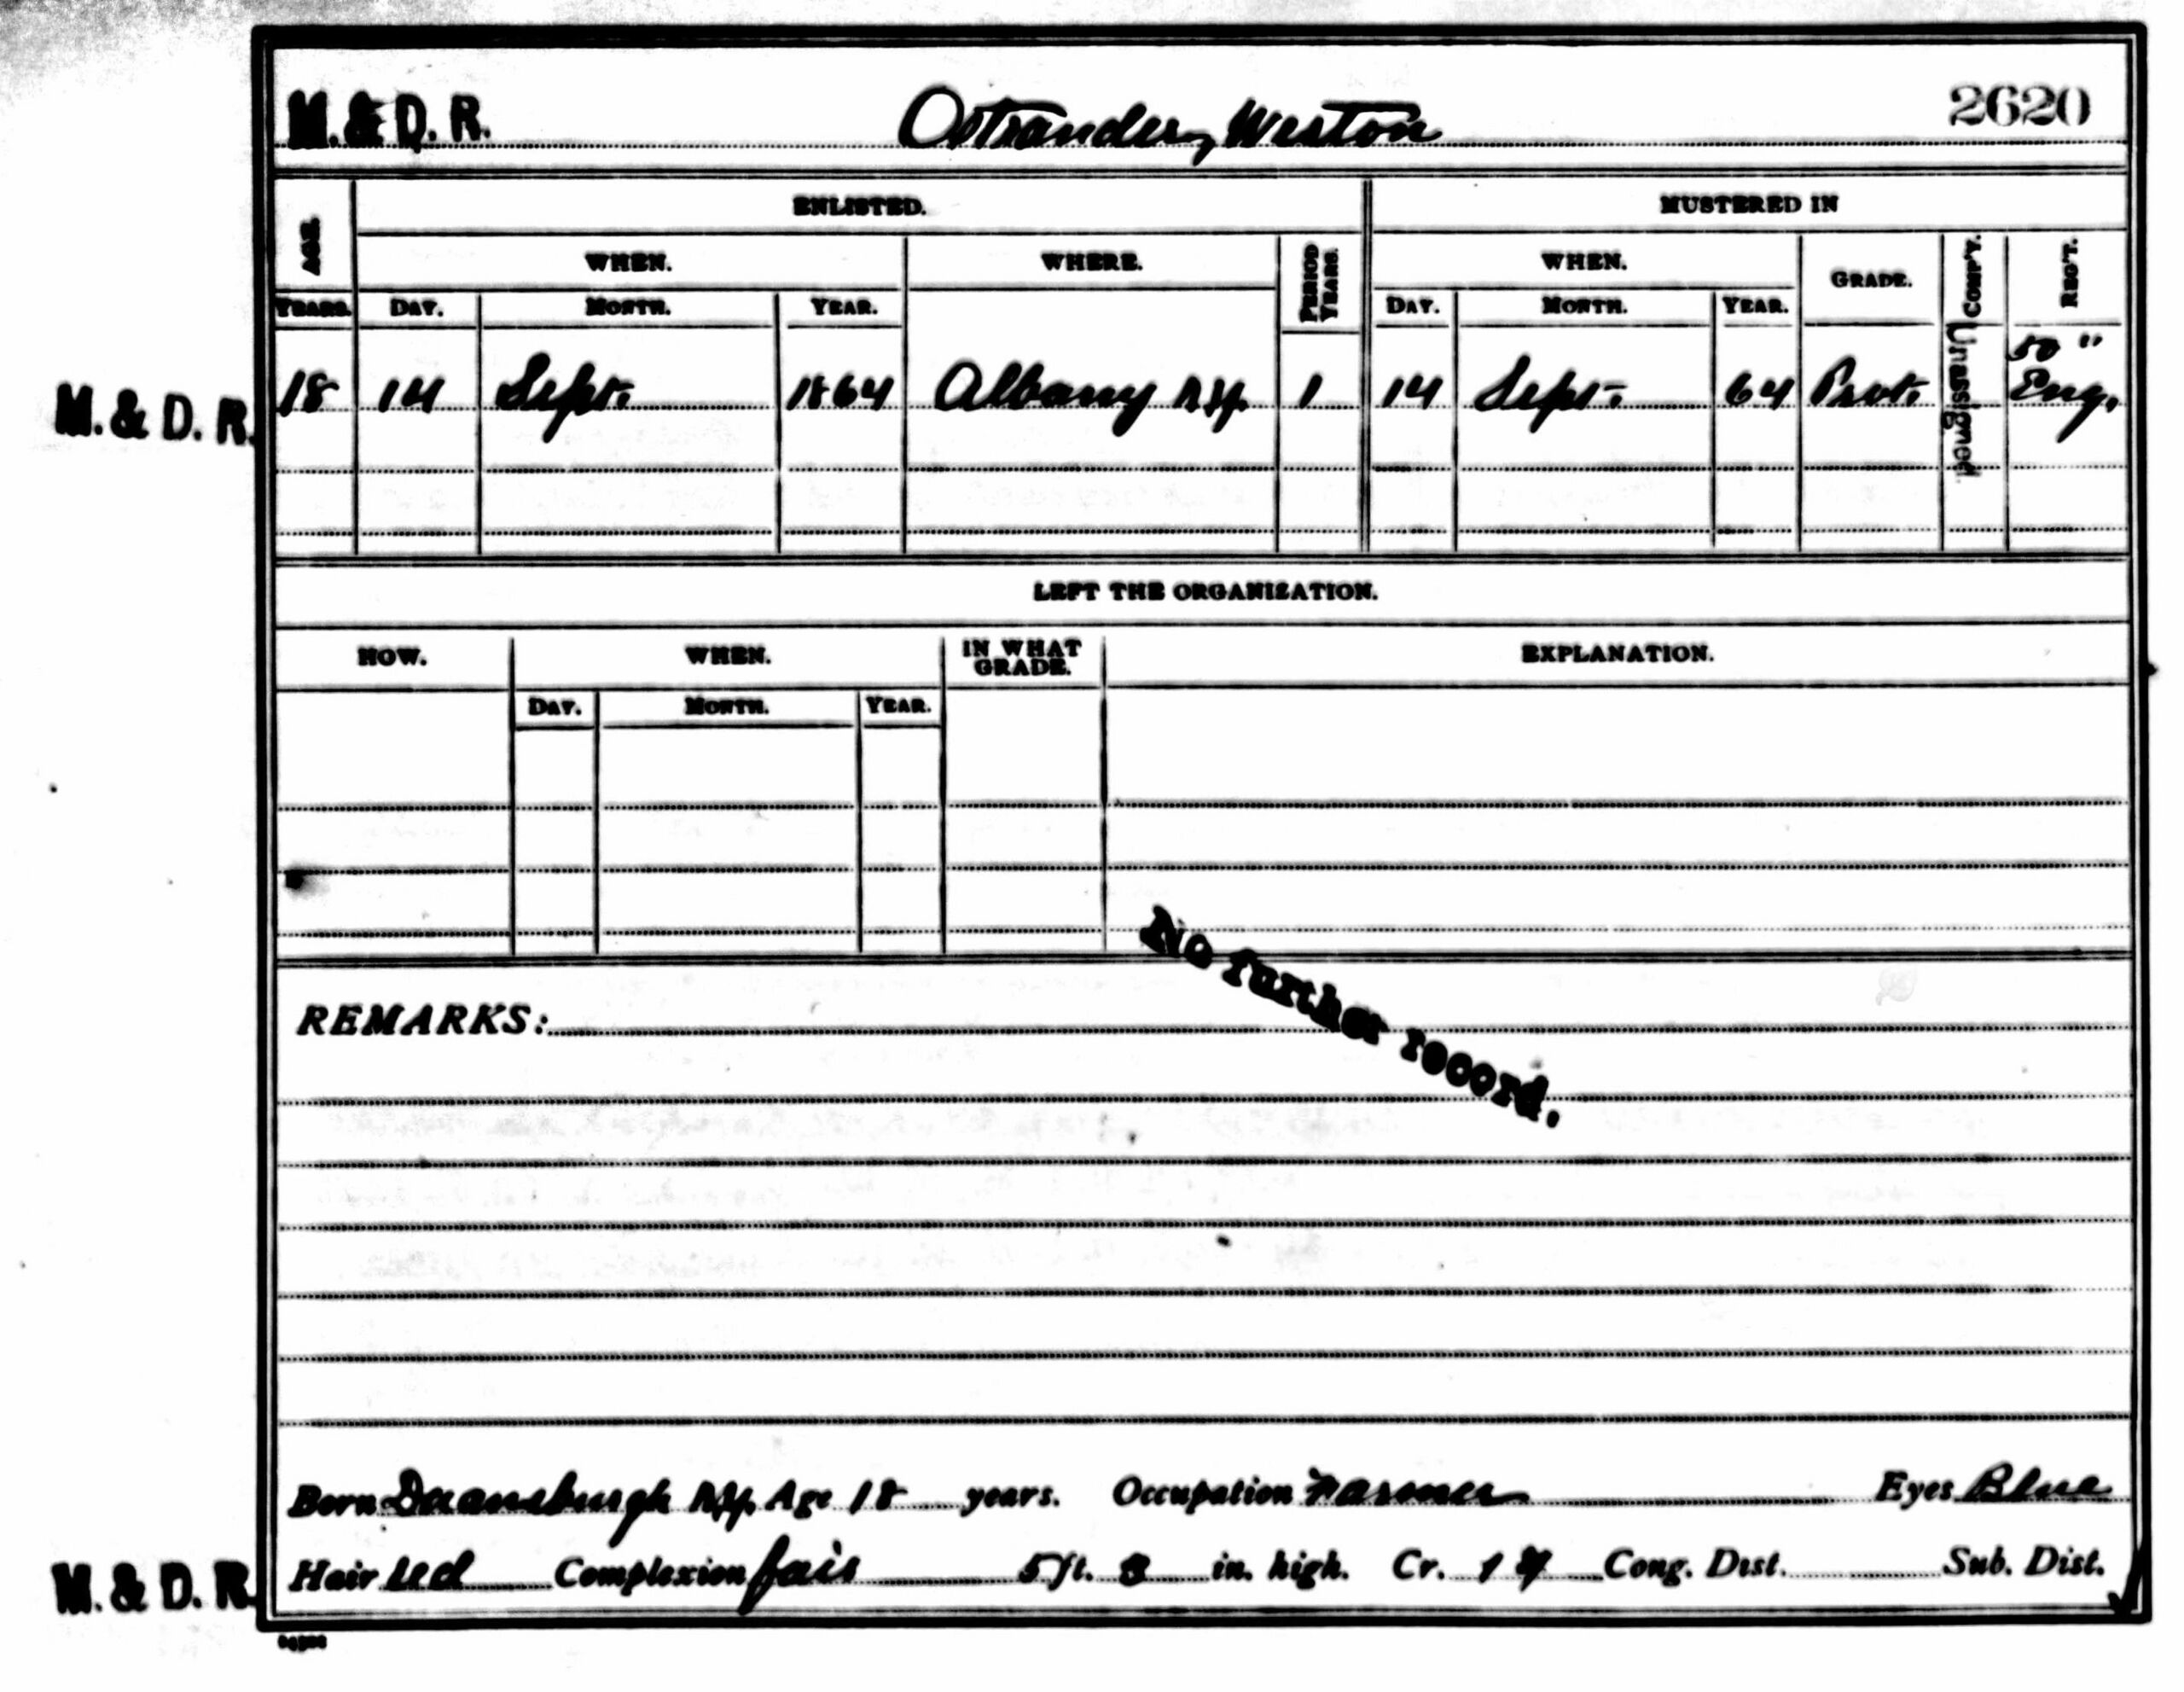 M. & D. R. Ostrander, Weston 2620
ENLISTED. MUSTERED IN
AGE. WHEN. WHERE. PERIOD YEARS. WHEN. GRADE. COMP'Y. REG'T.
YEARS. DAY. MONTH. YEAR. DAY. MONTH. YEAR.
50 "
M. & D. R. 18 14 Sept. 1864 Albany N.Y. 1 14 Sept. 64 Pvt. Unassigned. Eng.
LEFT THE ORGANIZATION.
HOW. WHEN. IN WHAT GRADE. EXPLANATION.
DAY. MONTH. YEAR.
No further record.
REMARKS:
Born Duanesburgh N.Y. Age 18 years. Occupation Farmer Eyes Blue
M. & D. R. Hair red Complexion fair 5 ft. in. high. Cr. Cong. Dist. Sub. Dist.